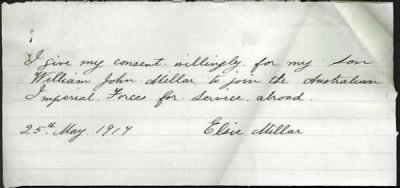 I give my consent willingly for my son
William John Millar to join the Australian
Imperial Forces for service abroad.
25th May 1917 Elsie Millar